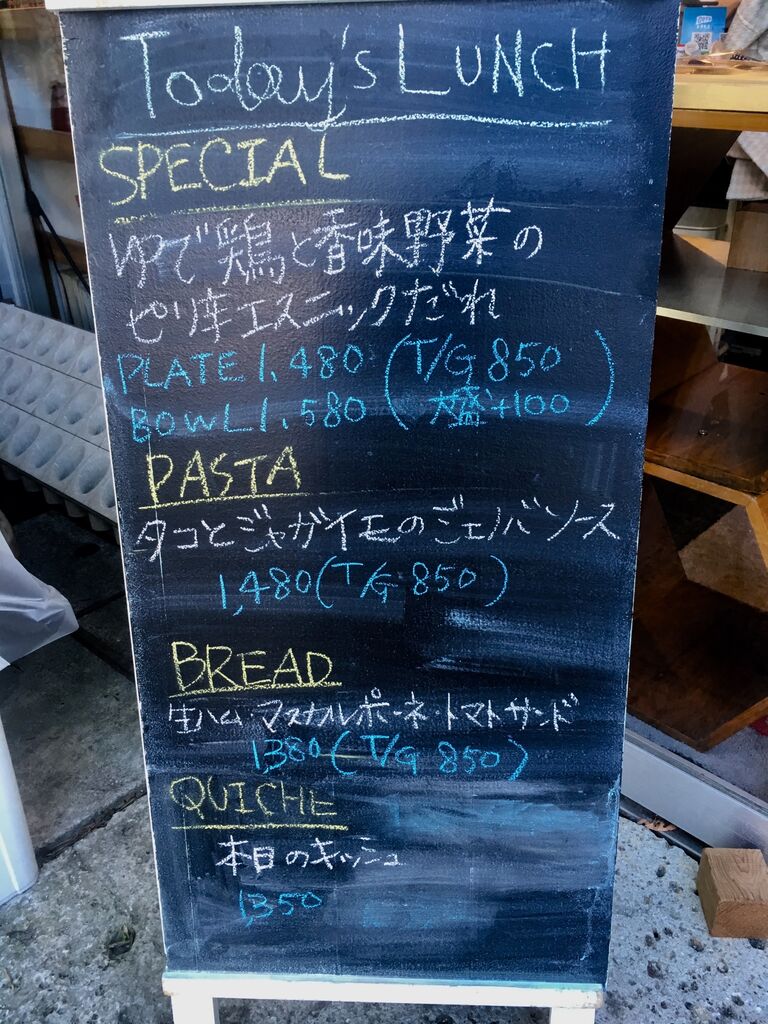 Today's LUNCH
SPECIAL
ゆで鶏と香味野菜の
ピリ辛エスニックだれ
PLATE 1,480 (T/G 850
BOWL 1,580 大盛+100)
PASTA
タコとジャガイモのジェノバソース
1,480 (T/G 850)
BREAD
生ハム・マスカルポーネ・トマトサンド
1380 (T/G 850)
QUICHE
本日のキッシュ
1,350